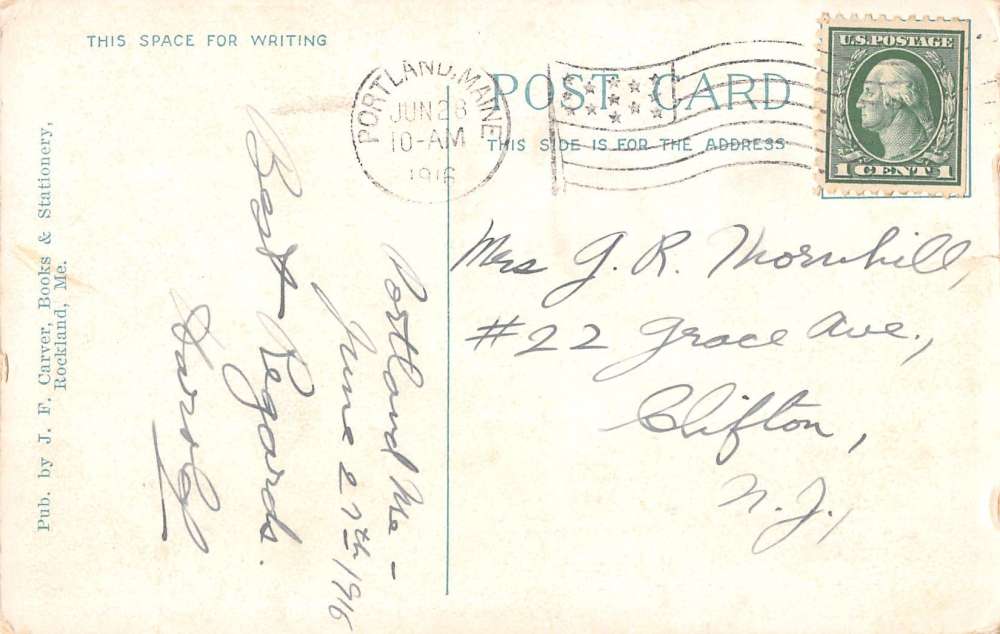 THIS SPACE FOR WRITING
POST CARD
THIS SIDE IS FOR THE ADDRESS
PORTLAND, MAINE
JUN 28
10-AM
1916
U.S. POSTAGE
1 CENT 1
Portland Me -
June 27th 1916
Best Regards.
Mrs G. R. Thornhill,
#22 Grace Ave.,
Clifton,
N. J.,
Pub. by J. F. Carver, Books & Stationery,
Rockland, Me.